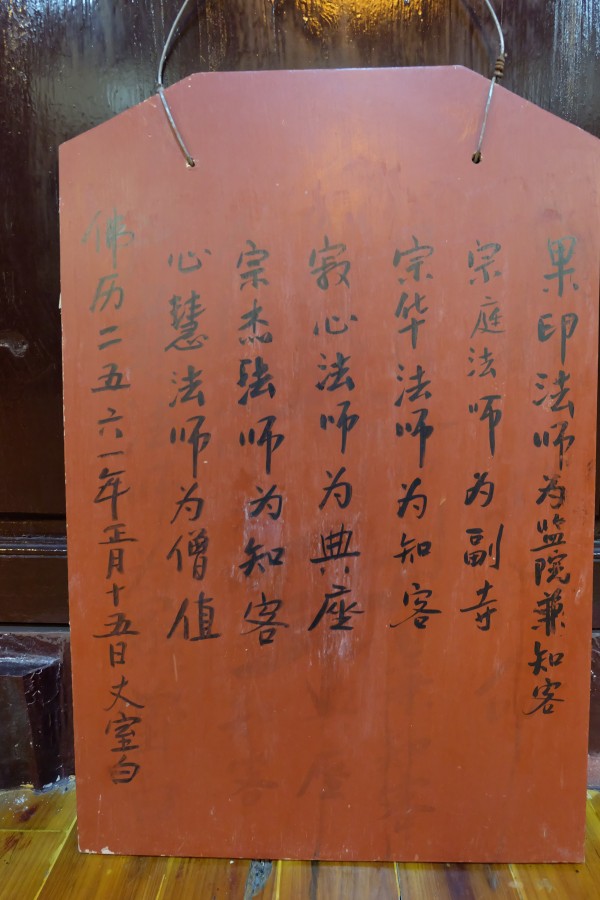 果印法师为监院兼知客
宗庭法师为副寺
宗华法师为知客
寂心法师为典座
宗杰法师为知客
心慧法师为僧值
佛历二五六一年正月十五日丈室白